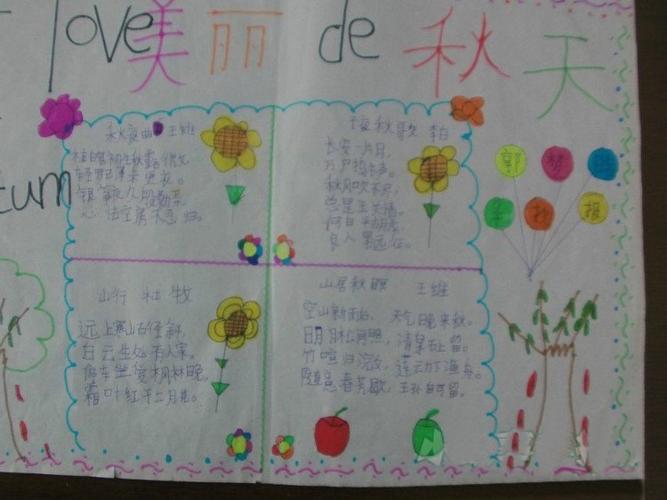 love 美丽 de 秋天
tum
秋夜曲 王维
桂魄初生秋露微
轻罗已薄未更衣。
银筝夜久殷勤弄
心怯空房不忍归。
子夜秋歌 李白
长安一片月,
万户捣衣声。
秋风吹不尽,
总是玉关情。
何日平胡虏,
良人罢远征。
山行 杜牧
远上寒山石径斜,
白云生处有人家。
停车坐爱枫林晚,
霜叶红于二月花。
山居秋暝 王维
空山新雨后, 天气晚来秋。
明月松间照, 清泉石上留。
竹喧归浣女, 莲动下渔舟。
随意春芳歇, 王孙自可留。
报